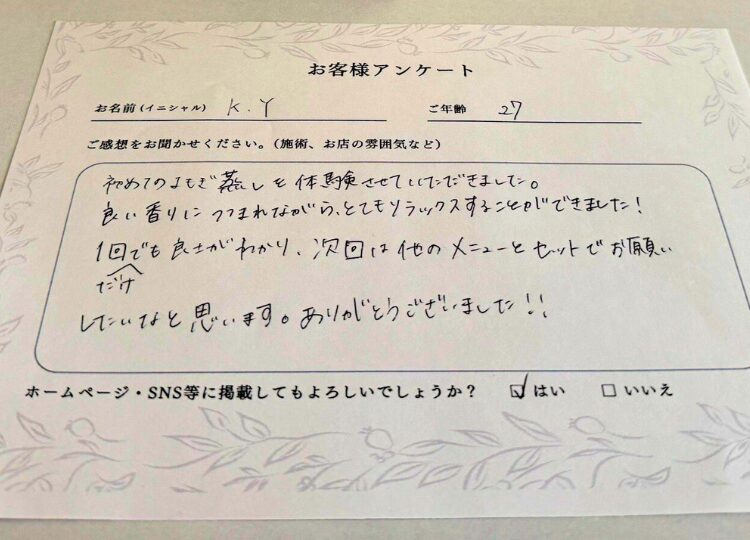 お客様アンケート
お名前(イニシャル) K.Y ご年齢 27
ご感想をお聞かせください。(施術、お店の雰囲気など)
初めてのよもぎ蒸しを体験させていただきました。
良い香りにつつまれながら、とてもリラックスすることができました!
1回でも良さがわかり、次回は他のメニューとセットでお願い
だけ
したいなと思います。ありがとうございました!!
ホームページ・SNS等に掲載してもよろしいでしょうか? ☑はい □いいえ